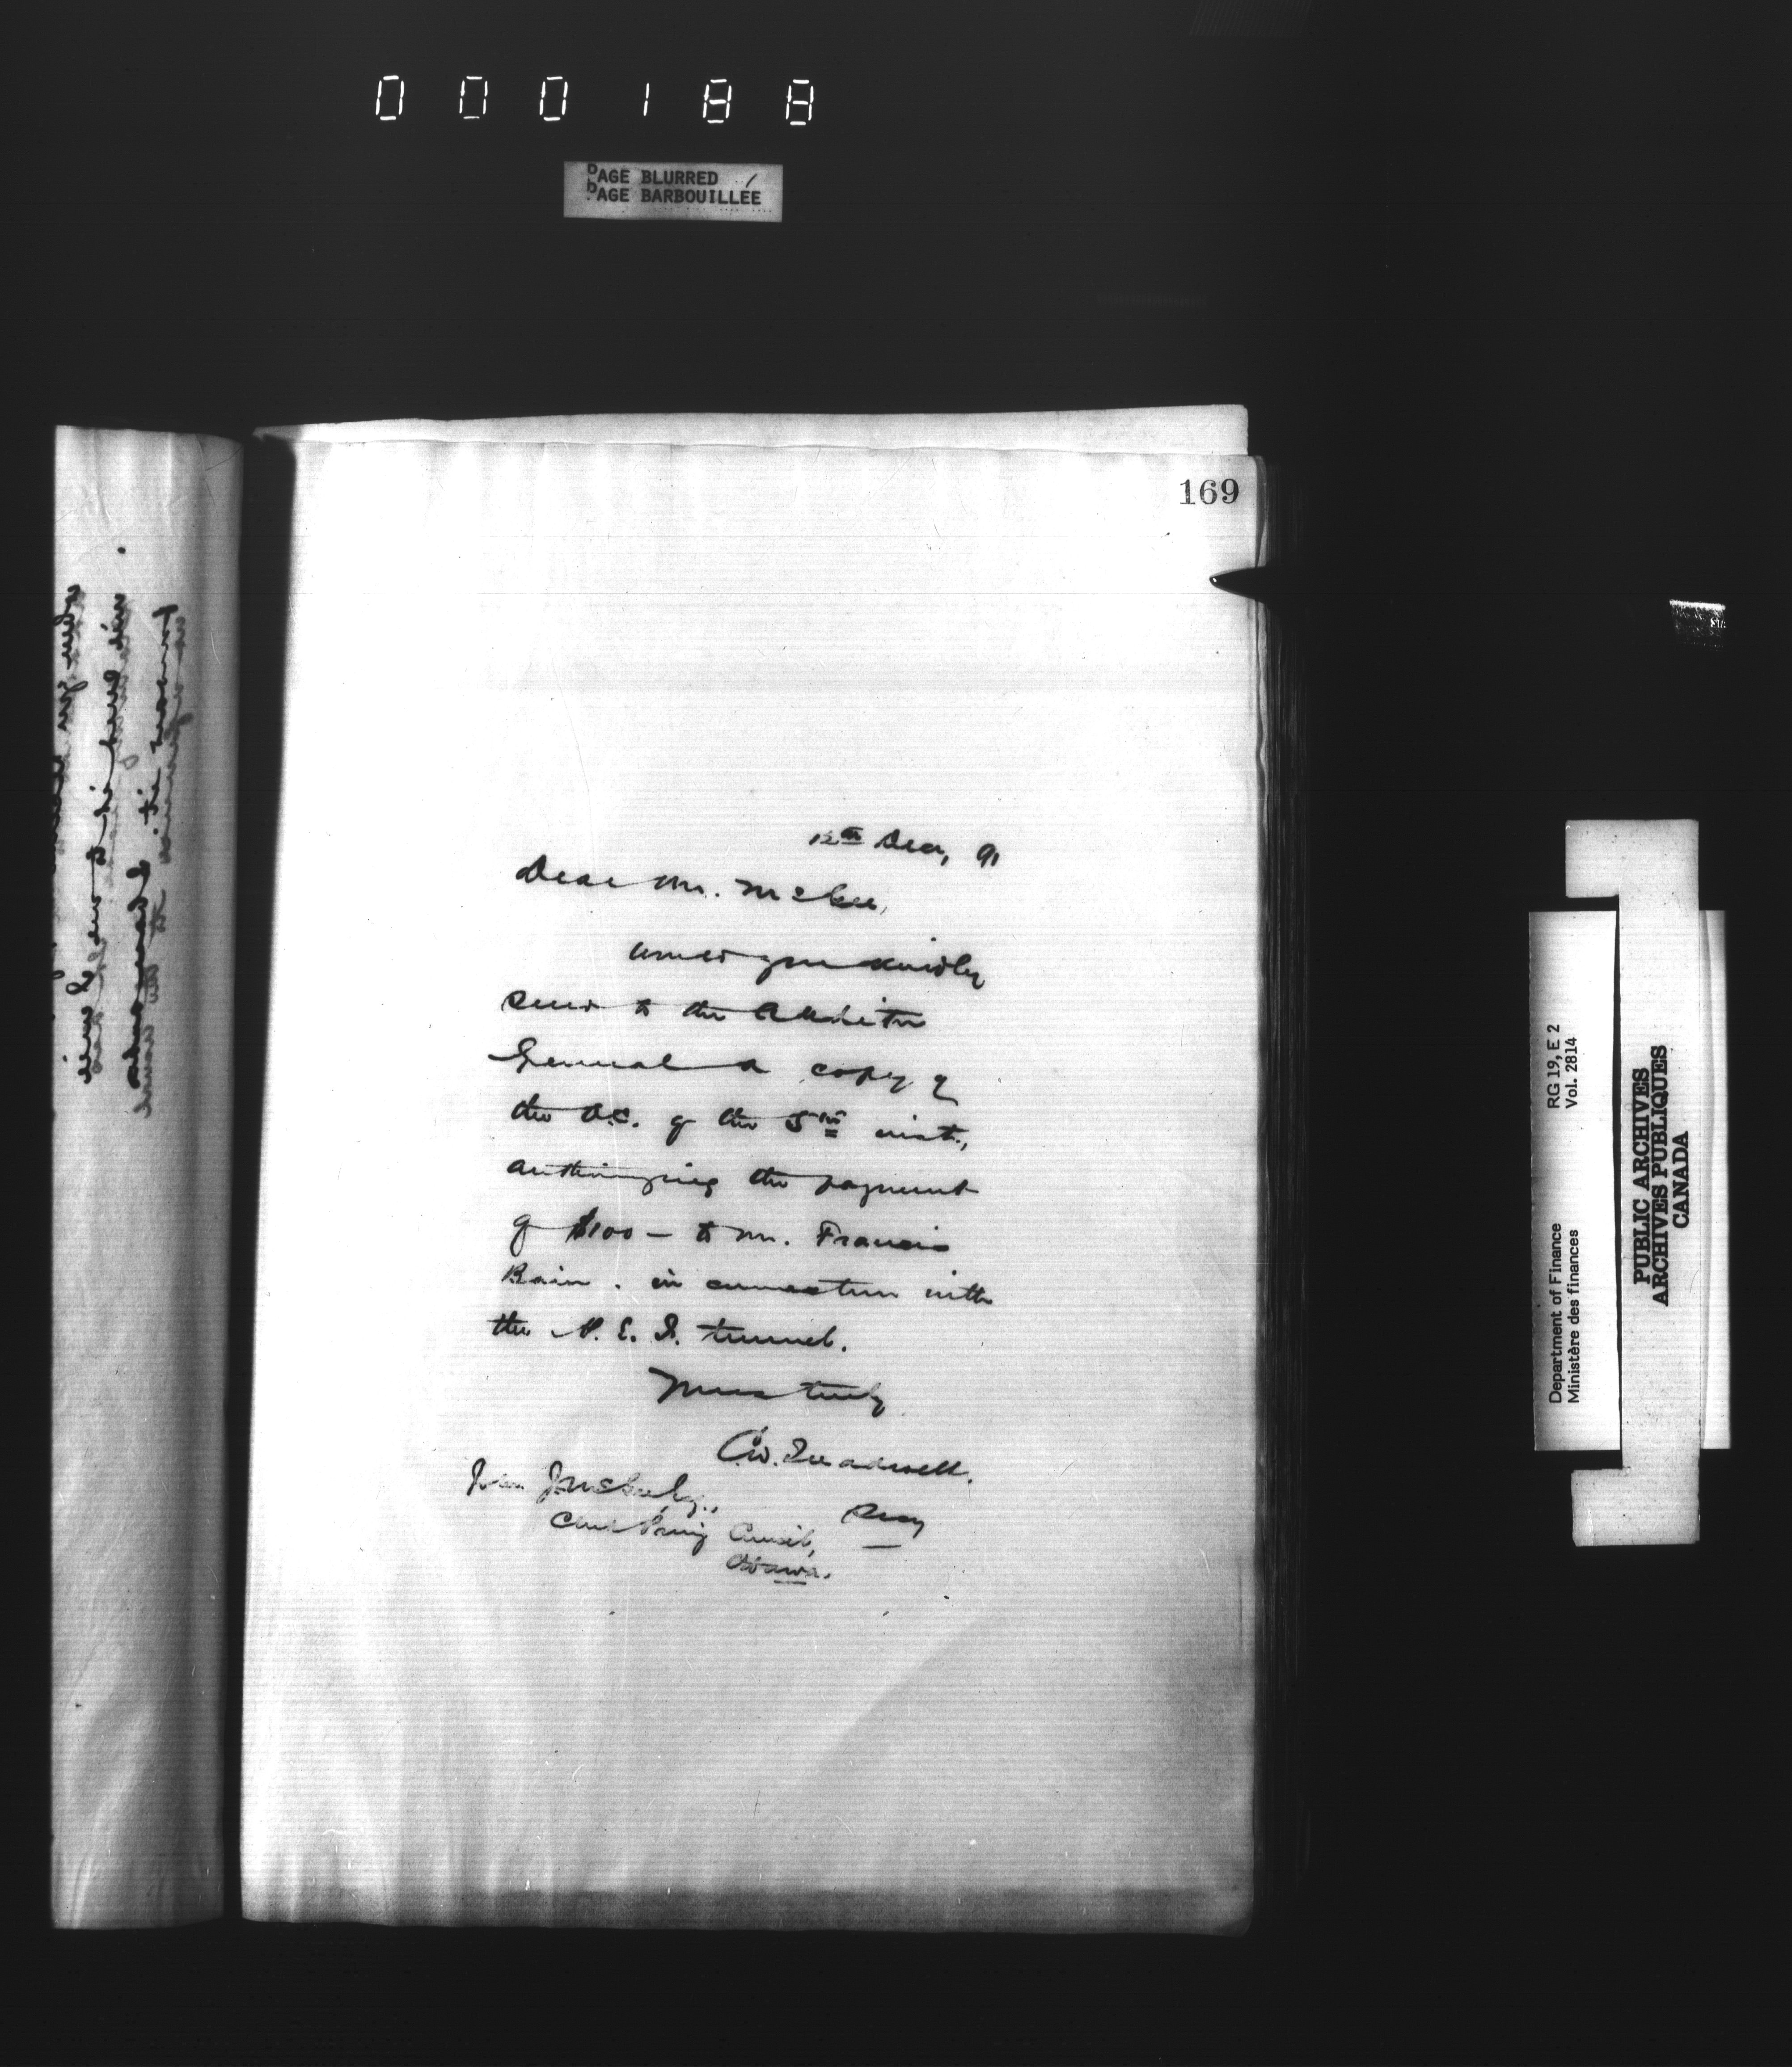 000188
PAGE BLURRED
PAGE BARBOUILLÉE
169
12th Decr, 91
Dear Mr. McGee,
Would you kindly
send to the Auditor
General a copy of
the O.C. of the 5th inst.,
authorizing the payment
of $100 — to Mr. Francis
Bain. in connection with
the P. E. I. tunnel.
Yours truly
C.W. Treadwell.
Secy
John J. McGee Esq.,
Clerk Privy Council,
Ottawa.
Department of Finance
Ministère des finances
RG 19, E 2
Vol. 2814
PUBLIC ARCHIVES
ARCHIVES PUBLIQUES
CANADA